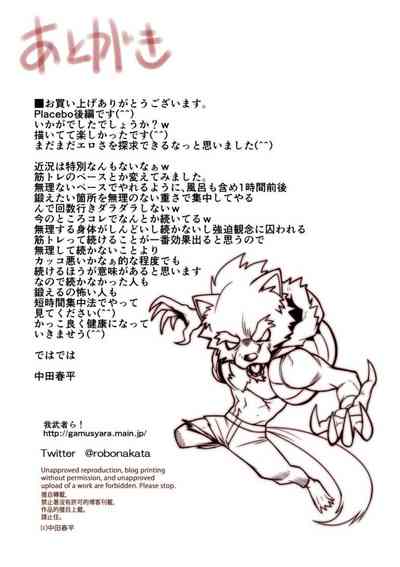 あとがき
■お買い上げありがとうございます。
Placebo後編です(^^)
いかがでしたでしょうか？w
描いてて楽しかったです(^^)
まだまだエロさを探求できるなっと思いました(^^)
近況は特別なんもないなぁw
筋トレのペースとか変えてみました。
無理ないペースでやれるように、風呂も含め1時間前後
鍛えたい箇所を無理のない重さで集中してやる
んで回数行きダラダラしないw
今のところコレでなんとか続いてるw
無理する身体がしんどいし続かないし強迫観念に囚われる
筋トレって続けることが一番効果出ると思うので
無理して続かないことより
カッコ悪いかなぁ的な程度でも
続けるほうが意味があると思います
なので続かなかった人も
鍛えるの怖い人も
短時間集中法でやって
見てください(^^)
かっこ良く健康になって
いきませう(^^)
ではでは
中田春平
我武者ら！
http://gamusyara.main.jp/
Twitter @robonakata
Unapproved reproduction, blog printing
without permission, and unauthorized
upload of a work are forbidden. Please stop.
擅自轉載,
禁止著沒有許可的博客刊載,
作品的擅自上載。
請止住。
(c)中田春平